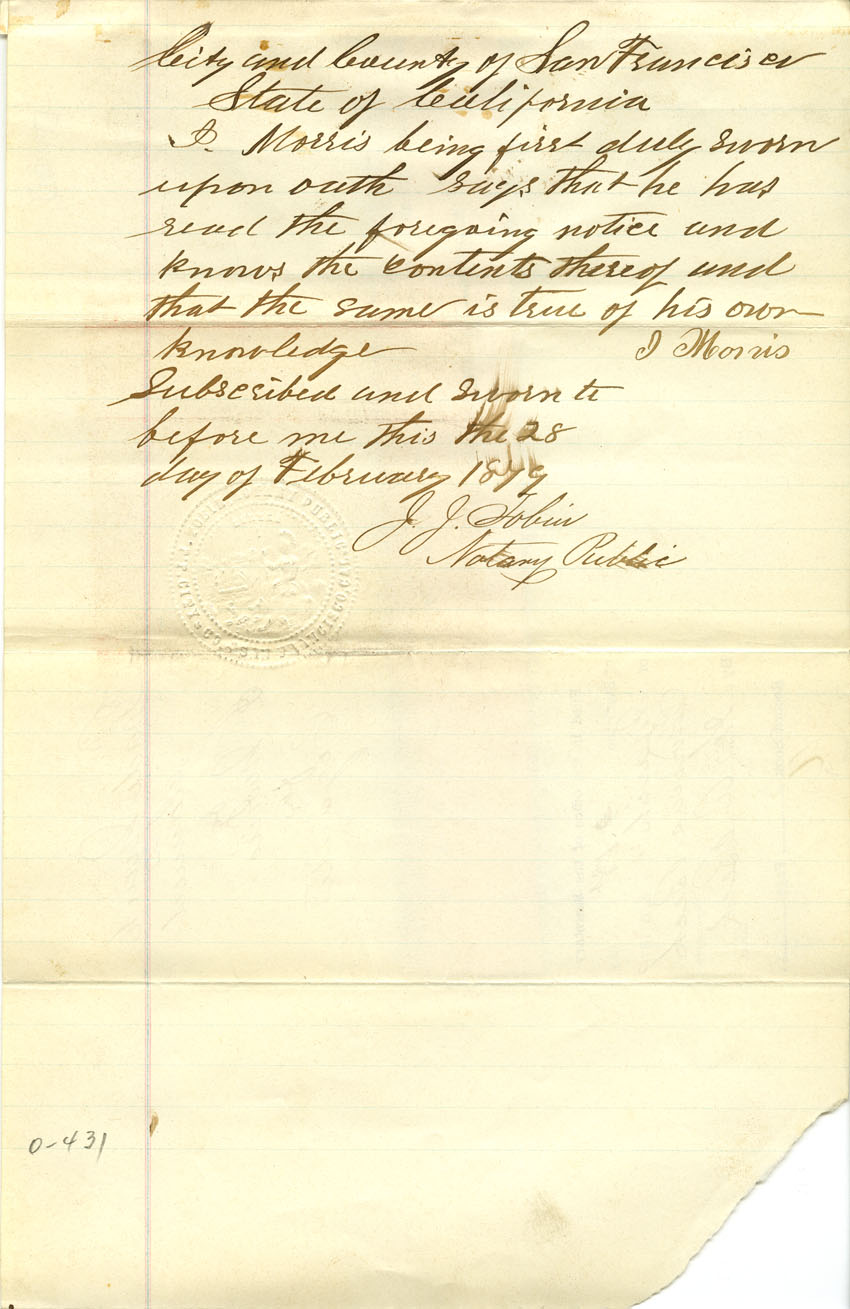 City and County of San Francisco
State of California
I. Morris being first duly sworn
upon oath says that he has
read the foregoing notice and
knows the contents thereof and
that the same is true of his own
knowledge I Morris
Subscribed and sworn to
before me this the 28
day of February 1879
J. J. Tobin
Notary Public
0-431